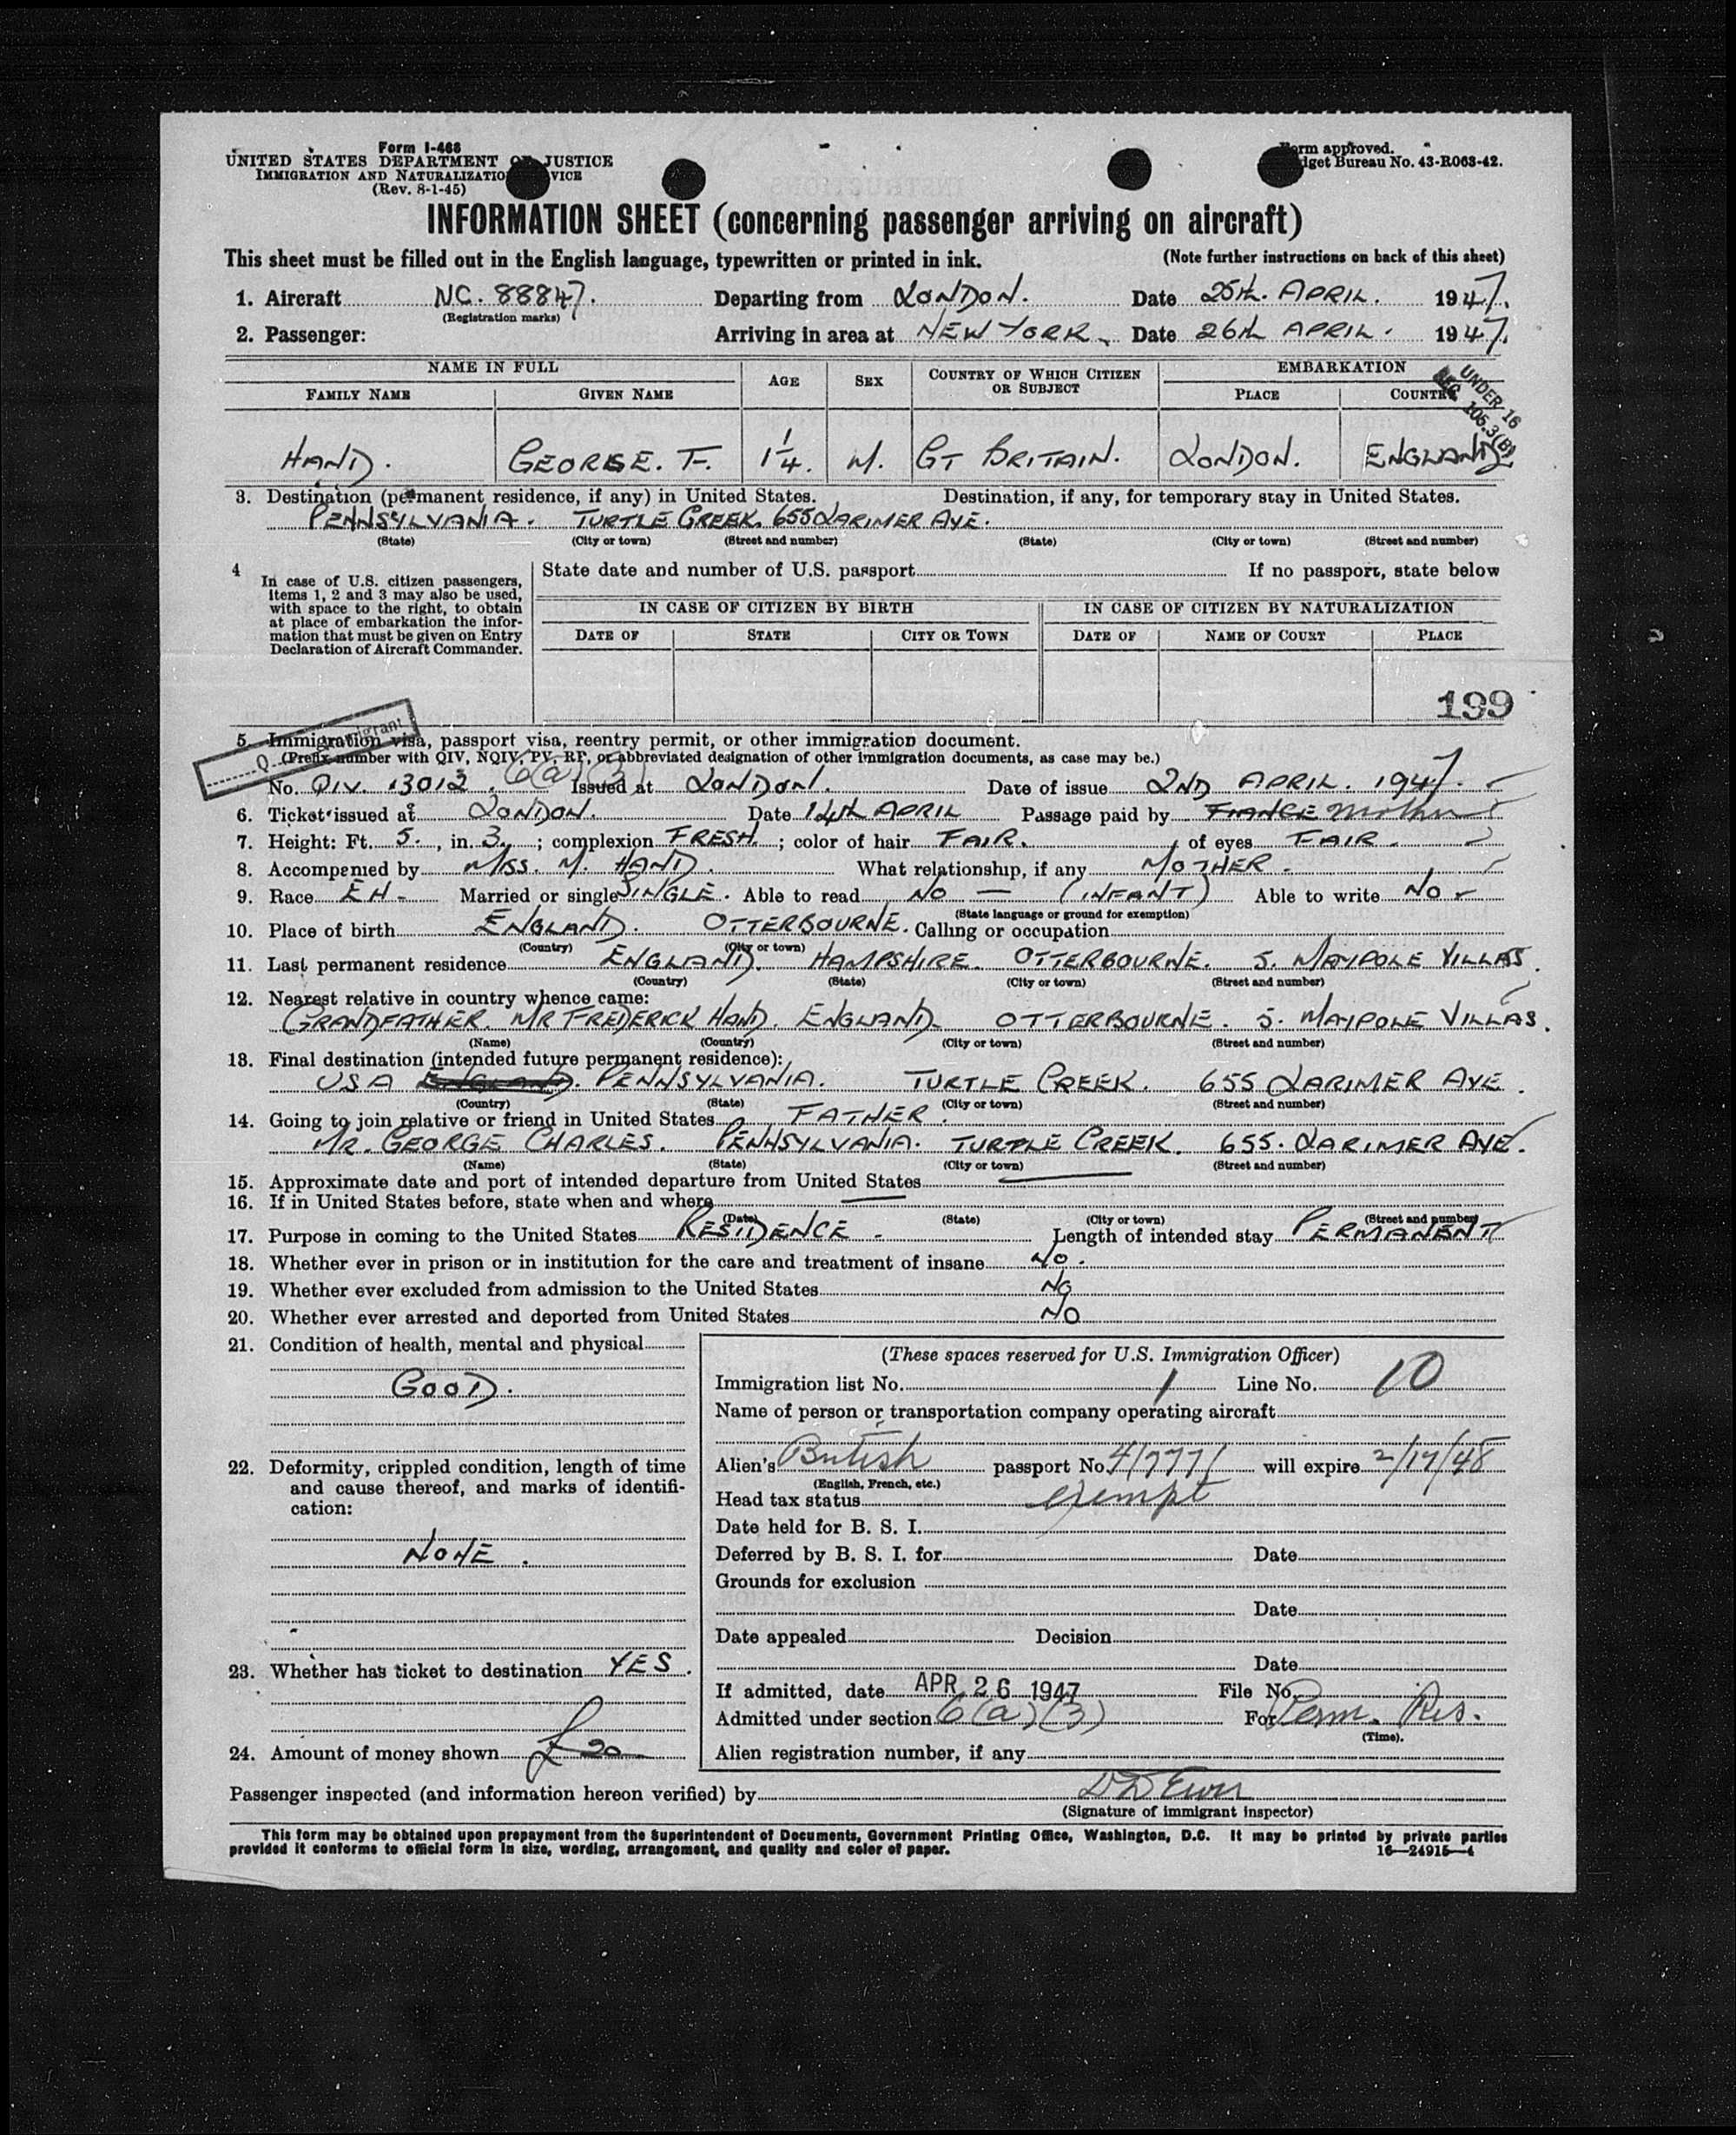 Form I-466
UNITED STATES DEPARTMENT OF JUSTICE
IMMIGRATION AND NATURALIZATIO VICE
(Rev. 8-1-45)
orm approved.
dget Bureau No. 43-R063-42.
INFORMATION SHEET (concerning passenger arriving on aircraft)
This sheet must be filled out in the English language, typewritten or printed in ink. (Note further instructions on back of this sheet)
1. Aircraft NC. 88847. Departing from LONDON. Date 25th. APRIL. 1947.
(Registration marks)
2. Passenger: Arriving in area at NEW YORK. Date 26th APRIL. 1947.
NAME IN FULL AGE SEX COUNTRY OF WHICH CITIZEN OR SUBJECT EMBARKATION
FAMILY NAME GIVEN NAME PLACE COUNTRY
UNDER 16
SEC. 105.3(B)
HAND. GEORGE. F. 1 1/4. M. GT BRITAIN. LONDON. ENGLAND.
3. Destination (permanent residence, if any) in United States. Destination, if any, for temporary stay in United States.
PENNSYLVANIA. TURTLE CREEK. 655 LARIMER AVE.
(State) (City or town) (Street and number) (State) (City or town) (Street and number)
4 In case of U.S. citizen passengers, items 1, 2 and 3 may also be used, with space to the right, to obtain at place of embarkation the information that must be given on Entry Declaration of Aircraft Commander.
State date and number of U.S. passport If no passport, state below
IN CASE OF CITIZEN BY BIRTH IN CASE OF CITIZEN BY NATURALIZATION
DATE OF STATE CITY OR TOWN DATE OF NAME OF COURT PLACE
199
5. Immigration visa, passport visa, reentry permit, or other immigration document.
(Prefix number with QIV, NQIV, PV, RP, or abbreviated designation of other immigration documents, as case may be.)
Q
6(a)(3)
No. QIV. 13012. Issued at LONDON. Date of issue 2ND APRIL. 1947.
6. Ticket issued at LONDON. Date 14th APRIL Passage paid by FIANCE Mother
7. Height: Ft. 5., in. 3.; complexion FRESH.; color of hair FAIR., of eyes FAIR.
8. Accompanied by MISS. M. HAND. What relationship, if any MOTHER.
9. Race EH- Married or single SINGLE. Able to read NO — (INFANT) Able to write NO
(State language or ground for exemption)
10. Place of birth ENGLAND. OTTERBOURNE. Calling or occupation
(Country) (City or town)
11. Last permanent residence ENGLAND. HAMPSHIRE. OTTERBOURNE. 5. MAYPOLE VILLAS.
(Country) (State) (City or town) (Street and number)
12. Nearest relative in country whence came:
GRANDFATHER. MR FREDERICK HAND. ENGLAND. OTTERBOURNE. 5. MAYPOLE VILLAS.
(Name) (Country) (City or town) (Street and number)
13. Final destination (intended future permanent residence):
USA ENGLAND. PENNSYLVANIA. TURTLE CREEK. 655 LARIMER AVE.
(Country) (State) (City or town) (Street and number)
14. Going to join relative or friend in United States FATHER.
MR. GEORGE CHARLES. PENNSYLVANIA. TURTLE CREEK. 655. LARIMER AVE.
(Name) (State) (City or town) (Street and number)
15. Approximate date and port of intended departure from United States —
16. If in United States before, state when and where —
(Date) (State) (City or town) (Street and number)
17. Purpose in coming to the United States RESIDENCE. Length of intended stay PERMANENT
18. Whether ever in prison or in institution for the care and treatment of insane NO.
19. Whether ever excluded from admission to the United States NO
20. Whether ever arrested and deported from United States NO
21. Condition of health, mental and physical
GOOD.
22. Deformity, crippled condition, length of time and cause thereof, and marks of identification:
NONE.
23. Whether has ticket to destination YES.
24. Amount of money shown £20
(These spaces reserved for U.S. Immigration Officer)
Immigration list No. 1 Line No. 10
Name of person or transportation company operating aircraft
Alien's British passport No. 4/7771 will expire 2/17/48
(English, French, etc.)
Head tax status exempt
Date held for B. S. I.
Deferred by B. S. I. for Date
Grounds for exclusion
Date
Date appealed Decision
Date
If admitted, date APR 26 1947 File No.
Admitted under section 6(a)(3) For Perm. Res.
(Time).
Alien registration number, if any
Passenger inspected (and information hereon verified) by
(Signature of immigrant inspector)
This form may be obtained upon prepayment from the Superintendent of Documents, Government Printing Office, Washington, D.C. It may be printed by private parties
provided it conforms to official form in size, wording, arrangement, and quality and color of paper. 16—24915—4